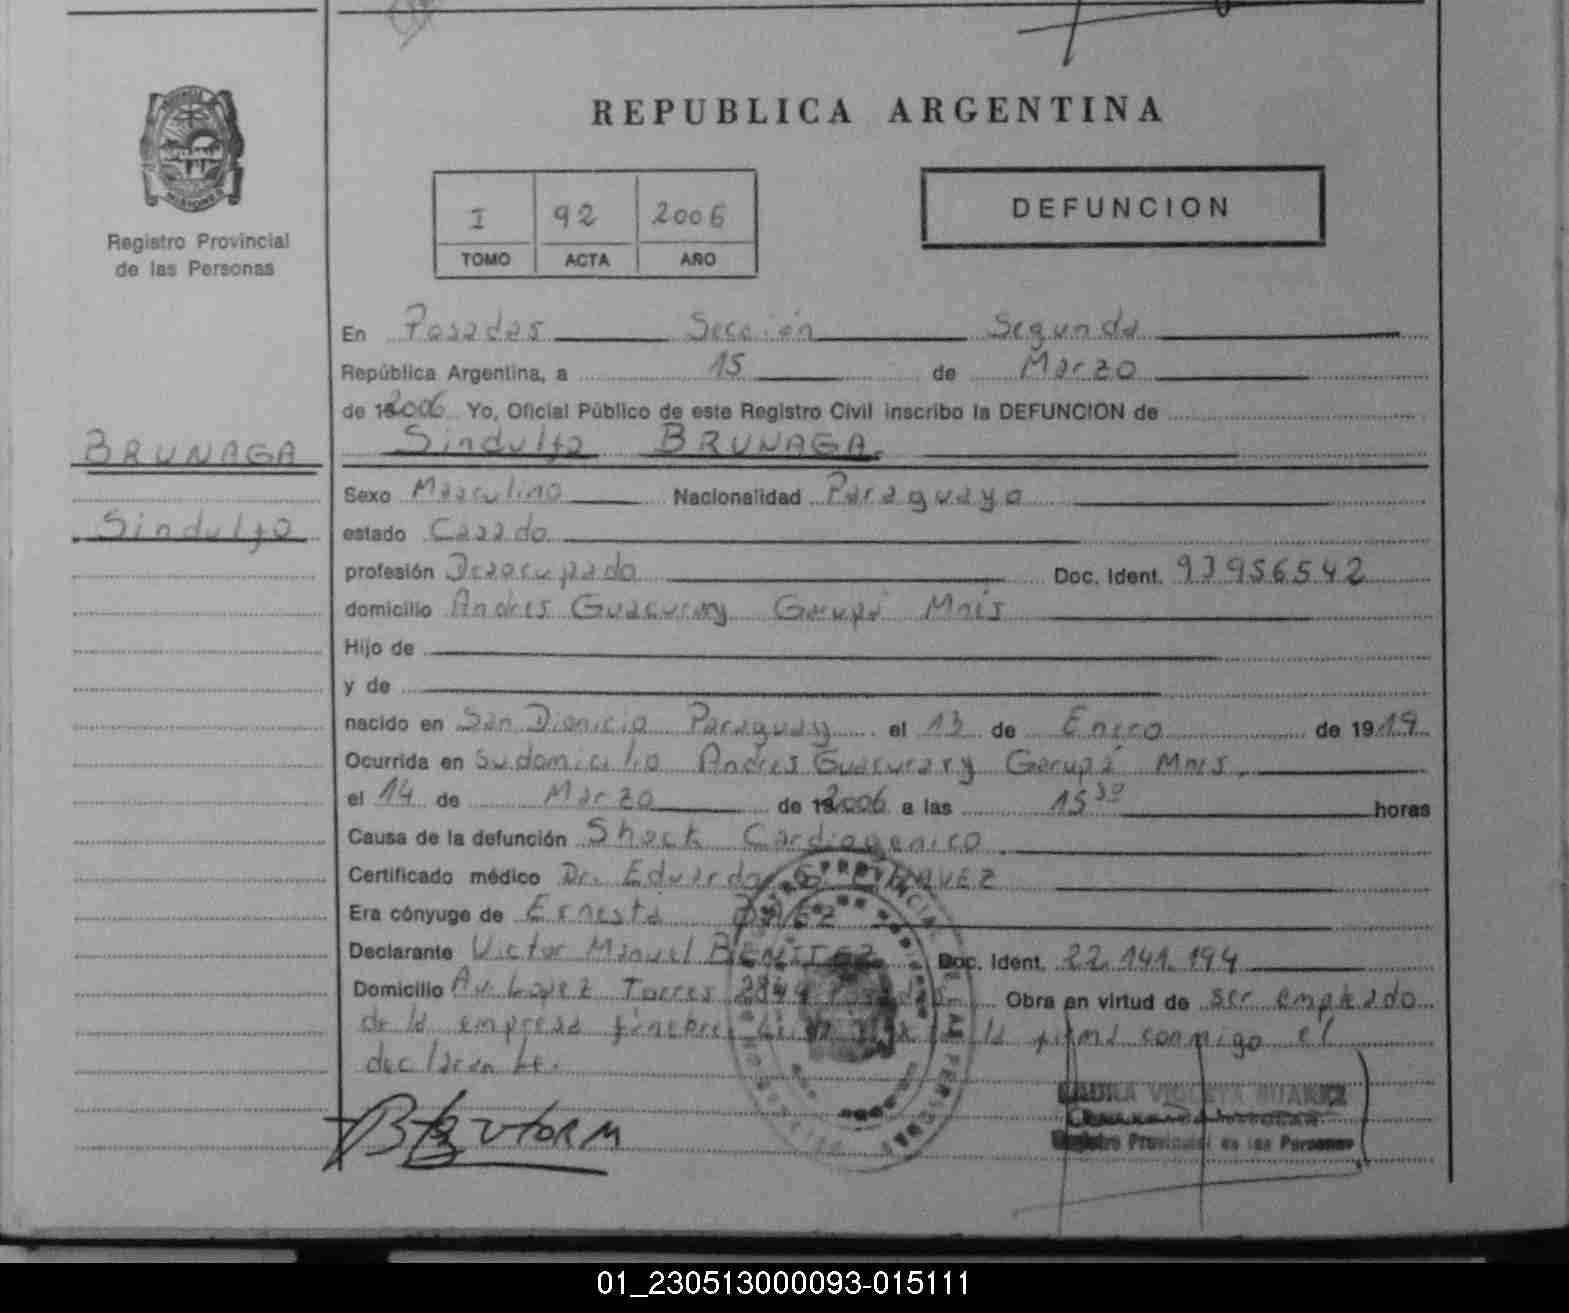 REPUBLICA ARGENTINA
Registro Provincial
de las Personas
I 92 2006
TOMO ACTA AÑO
DEFUNCION
En Posadas Sección Segunda
República Argentina, a 15 de Marzo
de 2006 Yo, Oficial Público de este Registro Civil inscribo la DEFUNCION de
BRUNAGA
Sindulfo
Sindulfo BRUNAGA.
Sexo Masculino Nacionalidad Paraguaya
estado Casado
profesión Desocupado Doc. Ident. 93956542
domicilio Andres Guacurary Garupá Mnes
Hijo de
y de
nacido en San Dionicio Paraguay el 13 de Enero de 1919
Ocurrida en Su domicilio Andres Guacurary Garupá Mnes.
el 14 de Marzo de 2006 a las 15 30 horas
Causa de la defunción Shock Cardiogenico
Certificado médico Dr. Eduardo
Era cónyuge de Ernesta BAEZ
Declarante Victor Manuel BENITEZ Doc. Ident. 22.141.194
Domicilio Av. Lopez Torres Posadas Obra en virtud de ser empleado
de la empresa fúnebre firma conmigo el
declarante.
Registro Provincial de las Personas
01_230513000093-015111